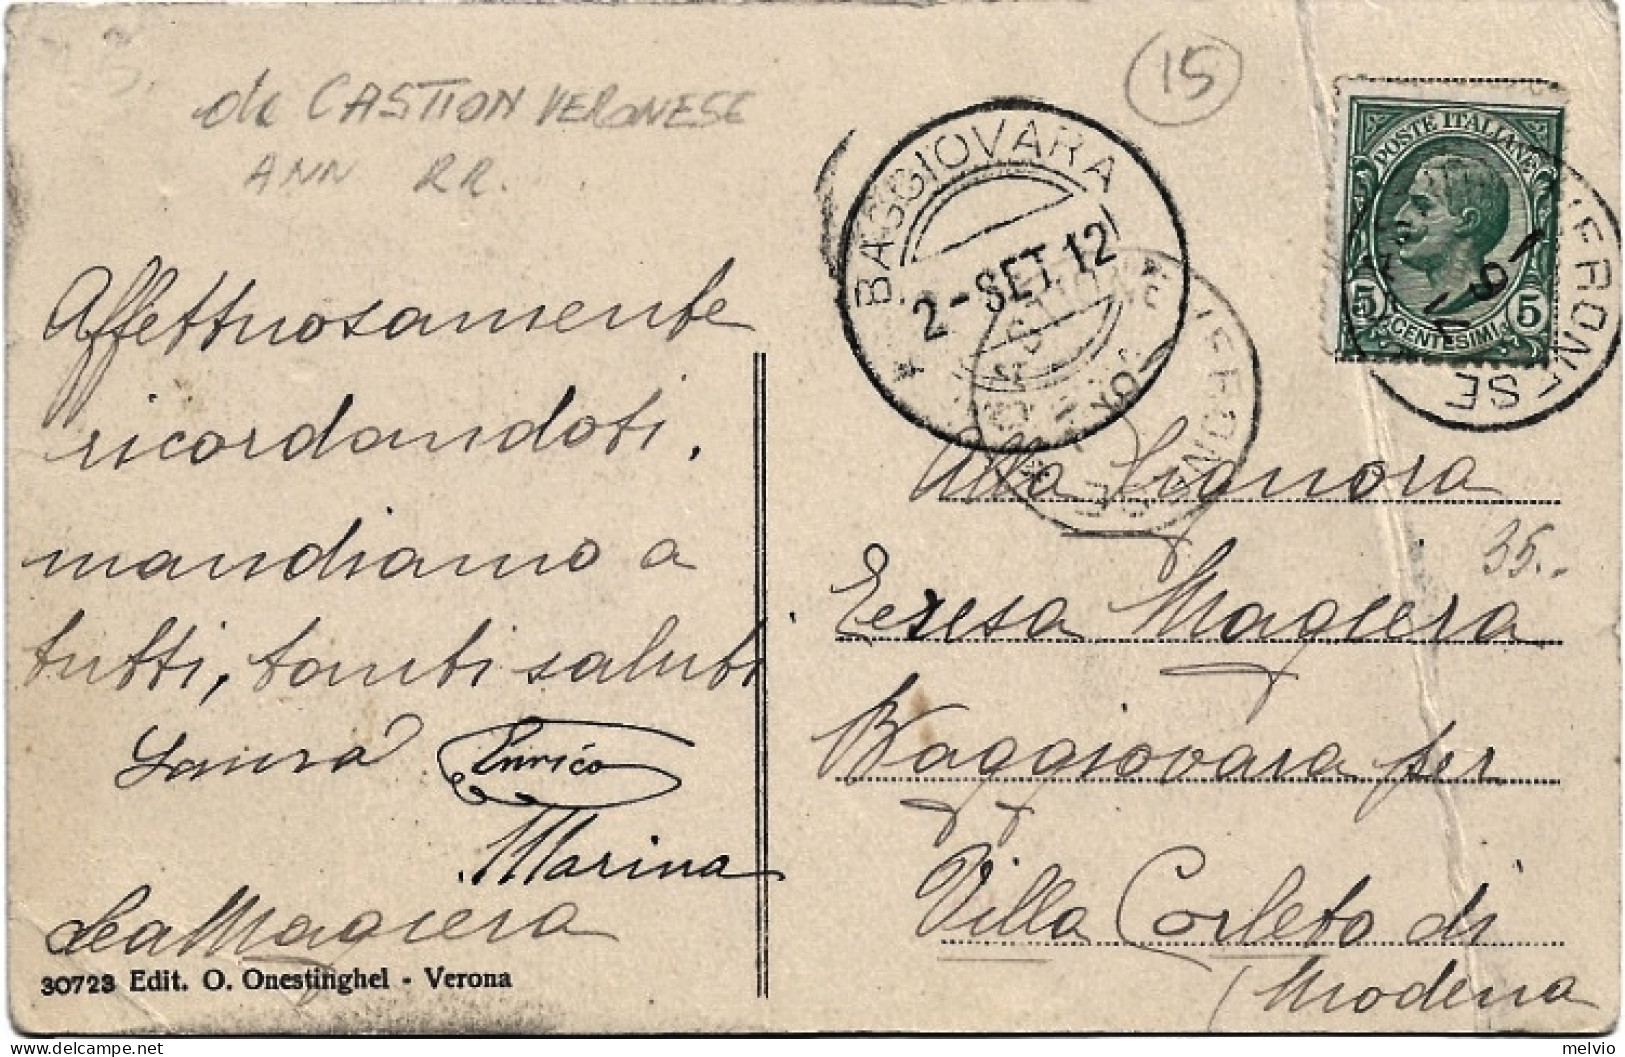 da CASTION VERONESE
ANN RR.
15
BAGGIOVARA
2-SET.12
POSTE ITALIANE
5 5
CENTESIMI
VERONESE
VERONESE
Affettuosamente
ricordandoti,
mandiamo a
tutti, tanti saluti
Laura Enrico
Marina
Lea Magiera
30723 Edit. O. Onestinghel - Verona
Alla Signora
35.-
Teresa Magiera
Baggiovara per
Villa Corleto di
(Modena
melvio